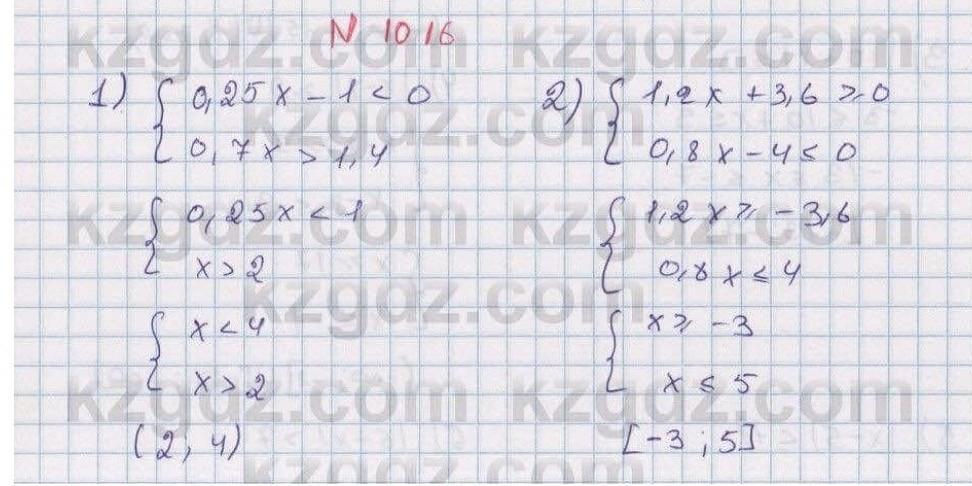 N 1016
1) { 0,25x - 1 < 0
0,7x > 1,4
{ 0,25x < 1
x > 2
{ x < 4
x > 2
(2, 4)
2) { 1,2x + 3,6 ⩾ 0
0,8x - 4 ≤ 0
{ 1,2x ⩾ -3,6
0,8x ≤ 4
{ x ⩾ -3
x ≤ 5
[-3 ; 5]
kzgdz.com kzgdz.com
kzgdz.com
kzgdz.com kzgdz.com
kzgdz.com
kzgdz.com kzgdz.com
kzgdz.com